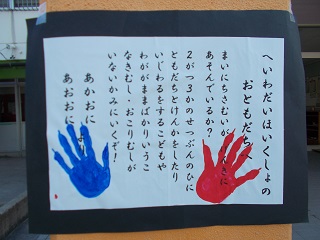 へいわだいほいくしょの
おともだちへ
まいにちさむいが
あそんでいるか？
2がつ3かのせつぶんのひに
ともだちとけんかをしたり
いじわるをするこどもや
わがままばかりいうこ
なきむし・おこりむしが
いないかみにいくぞ！
あかおに
あおおに